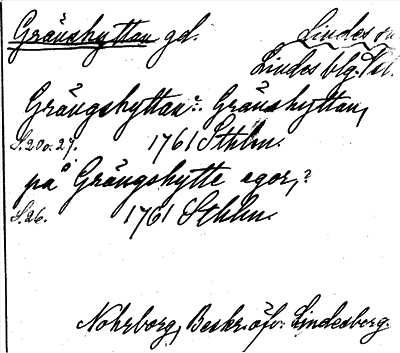 Gränshyttan gd. Lindes sn
Lindes blg. Vel.
Grängshyttan :. Gränshyttan,
S. 20 o. 27. 1761 Sthlm.
på Grängshytte egor,?
S. 26. 1761 Sthlm.
Nohrborg, Beskr. öfv. Lindesberg.